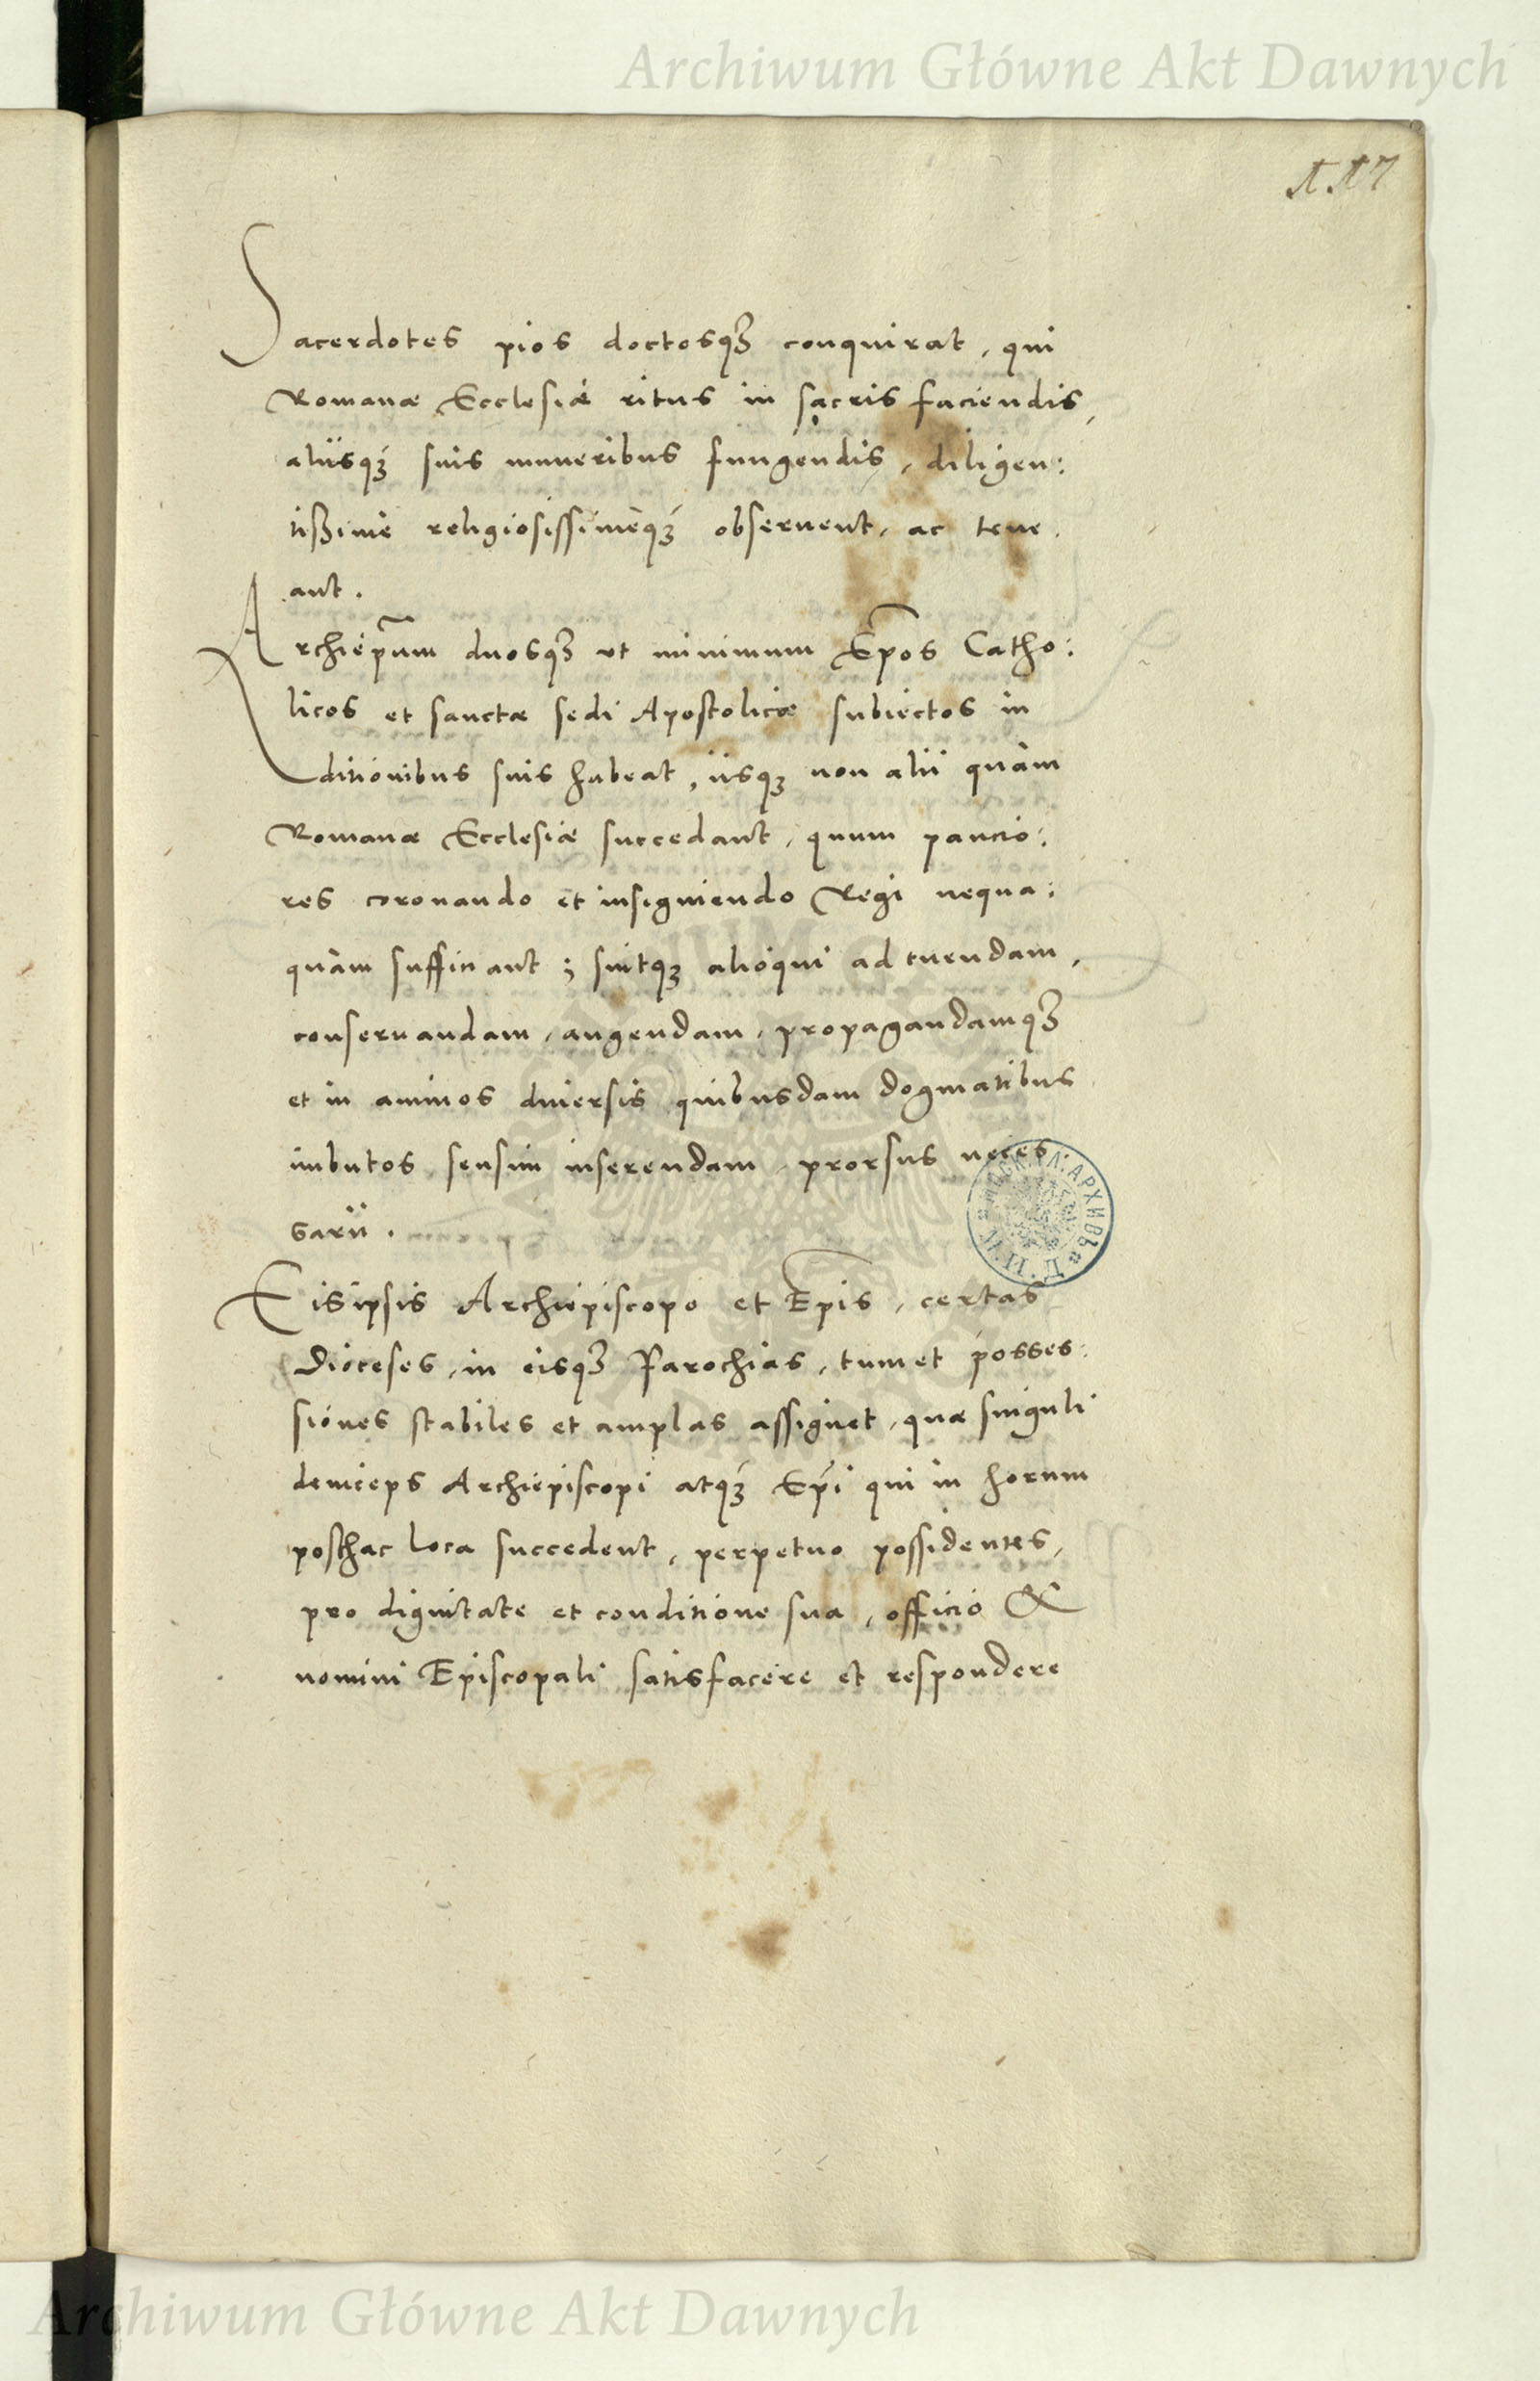 Archiwum Główne Akt Dawnych
117
Sacerdotes pios doctosqꝫ conquirat, qui
Romanæ Ecclesiæ ritus in sacris faciendis,
alijsqꝫ suis muneribus fungendis, diligen:
tißime religiosissimeqꝫ obseruent, ac tene.
ant.
Archiep̃um duosqꝫ ut minimum Ep̃os Catho:
licos et sanctæ sedi Apostolicæ subiectos in
ditionibus suis habeat, ijsqꝫ non alij quàm
Romanæ Ecclesiæ succedant, quum paucio:
res coronando et insigniendo Regi nequa:
quàm sufficiant; sintqꝫ alioqui ad tuendam,
conseruandam, augendam, propagandamqꝫ
et in animos diuersis quibusdam dogmatibus
imbutos sensim inserendam, prorsus neces
sarij.
Eisipsis Archiepiscopo et Ep̃is, certas
Dioceses, in eisqꝫ Parochias, tum et posses:
siones stabiles et amplas assignet, quæ singuli
deinceps Archiepiscopi atqꝫ Ep̃i qui in horum
posthac loca succedent, perpetuo possidentes,
pro dignitate et conditione sua, officio &
nomini Episcopali satisfacere et respondere
Archiwum Główne Akt Dawnych